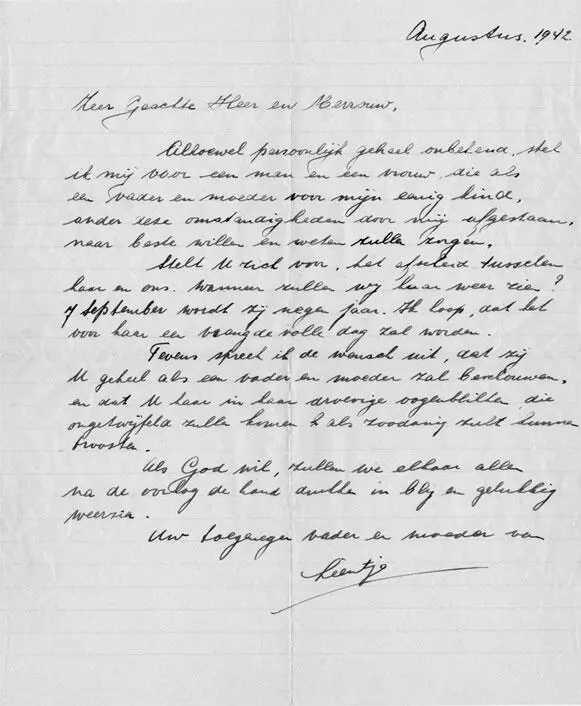 Augustus. 1942
Zeer Geachte Heer en Mevrouw,
Alhoewel persoonlijk geheel onbekend, stel
ik mij voor een man en een vrouw, die als
een vader en moeder voor mijn eenig kind,
onder deze omstandigheden door mij afgestaan,
naar beste willen en weten zullen zorgen.
Stelt U zich voor, het afscheid tusschen
haar en ons. Wanneer zullen wij haar weer zien?
7 September wordt zij negen jaar. Ik hoop, dat het
voor haar een vreugdevolle dag zal worden.
Tevens spreek ik de wensch uit, dat zij
U geheel als een vader en moeder zal beschouwen,
en dat U haar in haar droevige oogenblikken die
ongetwijfeld zullen komen als zoodanig zult kunnen
troosten.
Als God wil, zullen we elkaar allen
na de oorlog de hand drukken in blij en gelukkig
weerzien.
Uw toegenegen vader en moeder van
Leentje